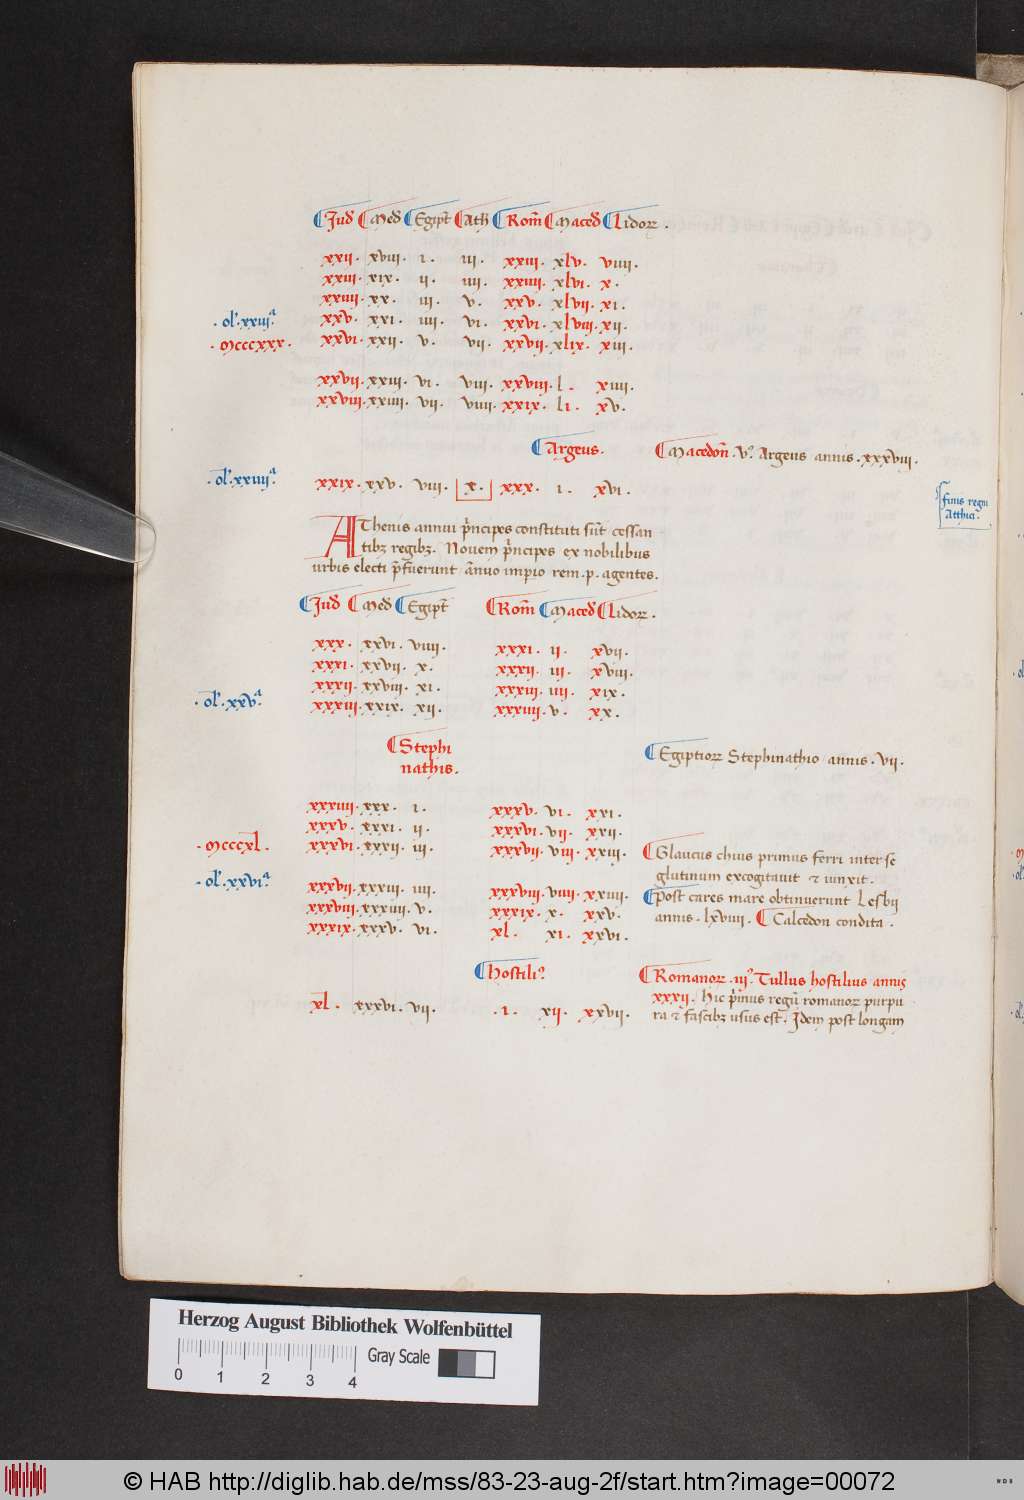 Jud̄ Med̄ Egipt̄ Ath Rom̄ Maced̄ Lidoꝝ .
xxii. xviii. i. iii. xxiii. xlv. viiii.
xxiii. xix. ii. iiii. xxiiii. xlvi. x.
xxiiii. xx. iii. v. xxv. xlvii. xi.
. ol̕. xxiii.ª xxv. xxi. iiii. vi. xxvi. xlviii. xii.
. Mcccxxx. xxvi. xxii. v. vii. xxvii. xlix. xiii.
xxvii. xxiii. vi. viii. xxviii. l. xiiii.
xxviii. xxiiii. vii. viiii. xxix. li. xv.
Argeus. Macedon̄. v.° Argeus annis. xxxviii.
. ol̕. xxiiii.ª xxix. xxv. viii. x. xxx. i. xvi.
finis regni
Atthici.
AThenis annui p̄ncipes constituti sūt cessan
tibꝫ regibꝫ. Nouem p̄ncipes ex nobilibus
urbis electi p̄fuerunt ānuo impio rem. p. agentes.
Jud̄ Med̄ Egipt̄ Rom̄ Maced̄ Lidoꝝ .
xxx. xxvi. viiii. xxxi. ii. xvii.
xxxi. xxvii. x. xxxii. iii. xviii.
xxxii. xxviii. xi. xxxiii. iiii. xix.
. ol̕. xxv.ª xxxiii. xxix. xii. xxxiiii. v. xx.
Stephi
nathis.
Egiptioꝝ Stephinathio annis. vii.
xxxiiii. xxx. i. xxxv. vi. xxi.
xxxv. xxxi. ii. xxxvi. vii. xxii.
. Mcccxl. xxxvi. xxxii. iii. xxxvii. viii. xxiii.
Glaucus chius primus ferri inter se
glutinum excogitauit ⁊ iunxit.
. ol̕. xxvi.ª xxxvii. xxxiii. iiii. xxxviii. viiii. xxiiii.
Post cares mare obtinuerunt Lesbii
xxxviii. xxxiiii. v. xxxix. x. xxv.
annis. lxviiii. Calcedon condita.
xxxix. xxxv. vi. xl. xi. xxvi.
hostiliꝰ
Romanoꝝ. iii.° Tullus hostilius annis
xxxii. hic p̄mus regū romanoꝝ purpu
xl. xxxvi. vii. . i. xii. xxvii.
ra ⁊ fascibꝫ usus est. Idem post longam
Herzog August Bibliothek Wolfenbüttel
Gray Scale
0 1 2 3 4
© HAB http://diglib.hab.de/mss/83-23-aug-2f/start.htm?image=00072